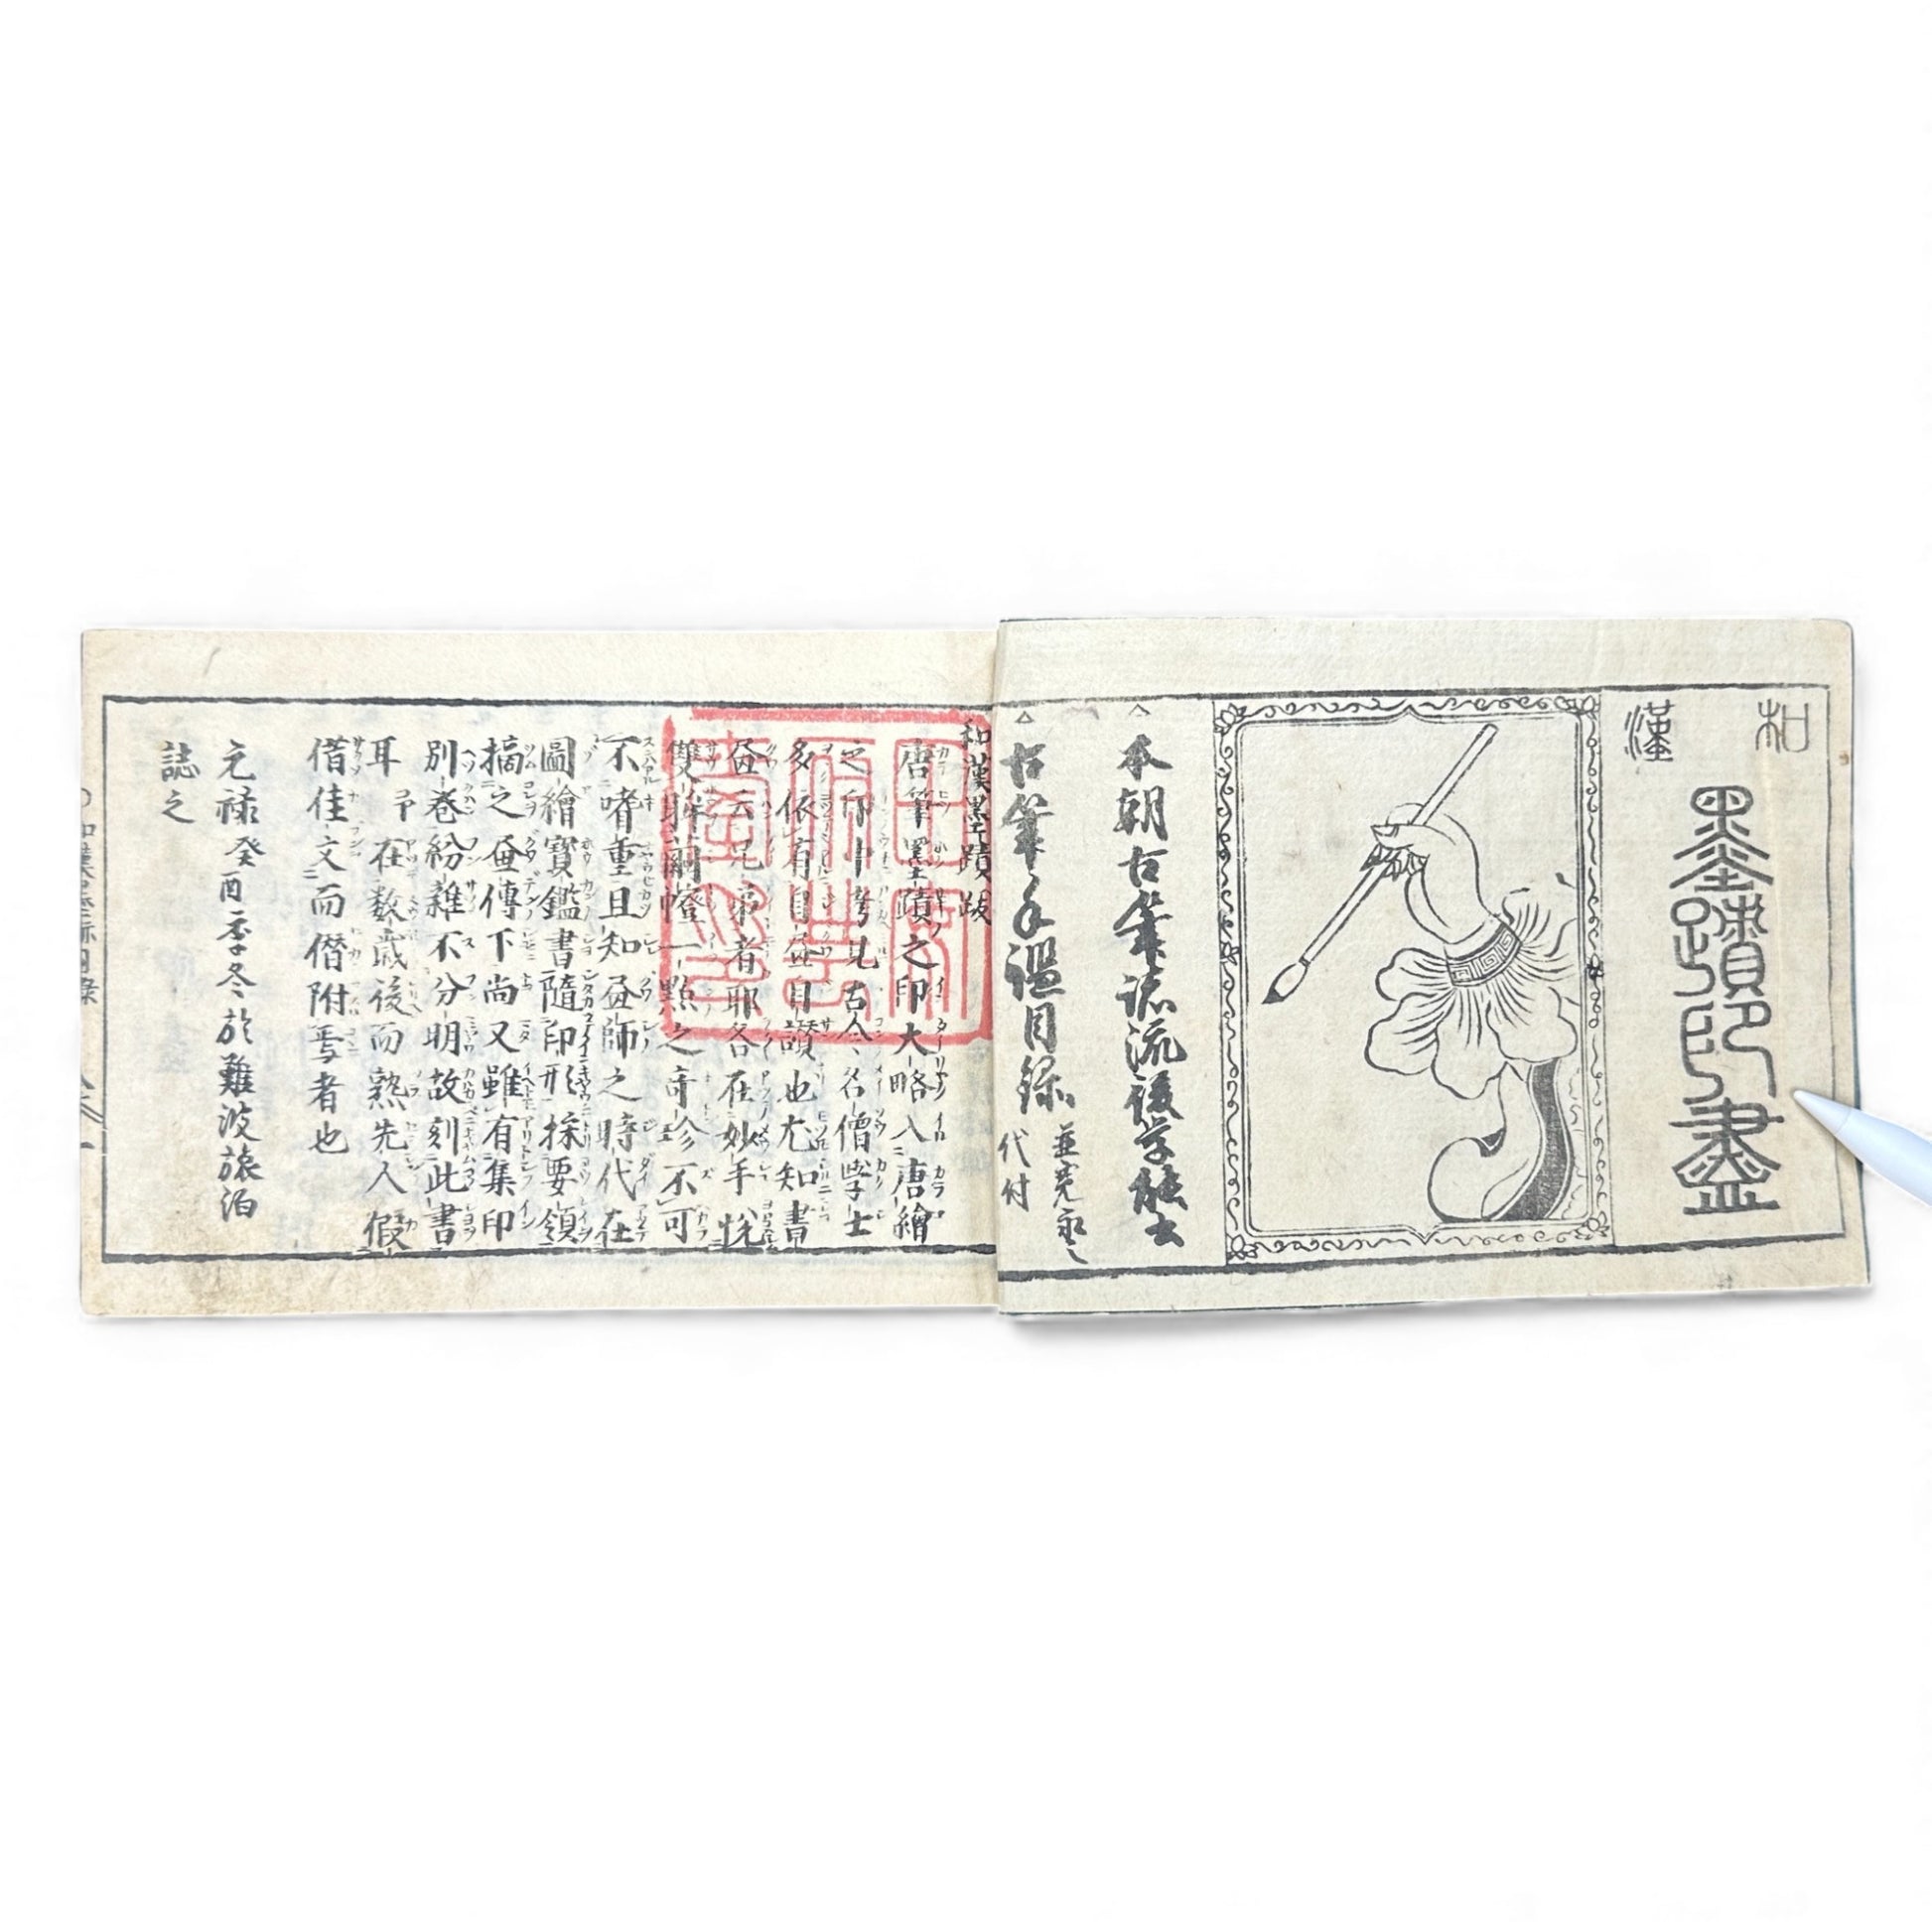 和漢
墨蹟印盡
本朝古筆諸流後学能士
古筆手鑑目録
並宛永〻
代付
和漢墨蹟跋
唐筆墨蹟之印大略入唐繪
之印中考見古今名僧学士
多依有自益自讃也尤知書
益云兄弟者耶各在妙手悦
雙聯蘭燈一點之奇珍不可
不嗜重且知益師之時代在
圖繪寶鑑書隨印形採要領
摘之益傳下尚又雖有集印
別巻紛雜不分明故刻此書
耳予在数歳後而熟先人假
借佳文而僭附焉者也
元禄癸酉季冬於難波旅泊
誌之